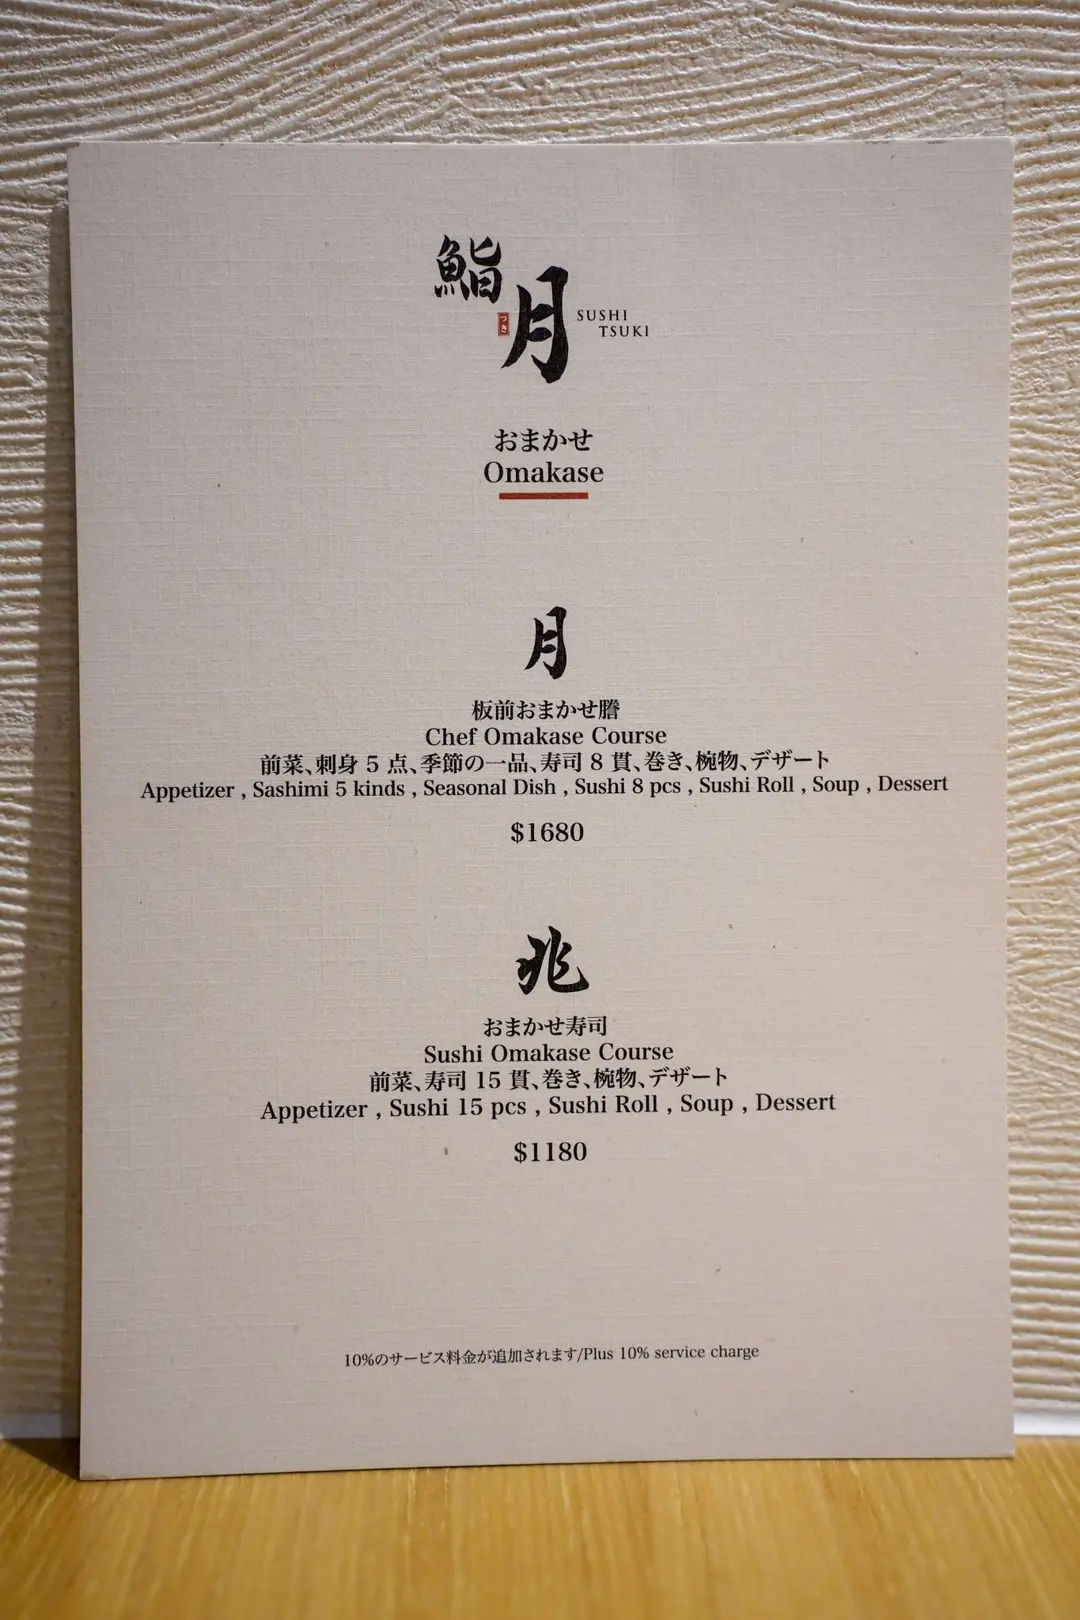 鮨
月
つき
SUSHI
TSUKI
おまかせ
Omakase
月
板前おまかせ謄
Chef Omakase Course
前菜、刺身 5 点、季節の一品、寿司 8 貫、巻き、椀物、デザート
Appetizer , Sashimi 5 kinds , Seasonal Dish , Sushi 8 pcs , Sushi Roll , Soup , Dessert
$1680
兆
おまかせ寿司
Sushi Omakase Course
前菜、寿司 15 貫、巻き、椀物、デザート
Appetizer , Sushi 15 pcs , Sushi Roll , Soup , Dessert
$1180
10%のサービス料金が追加されます/Plus 10% service charge